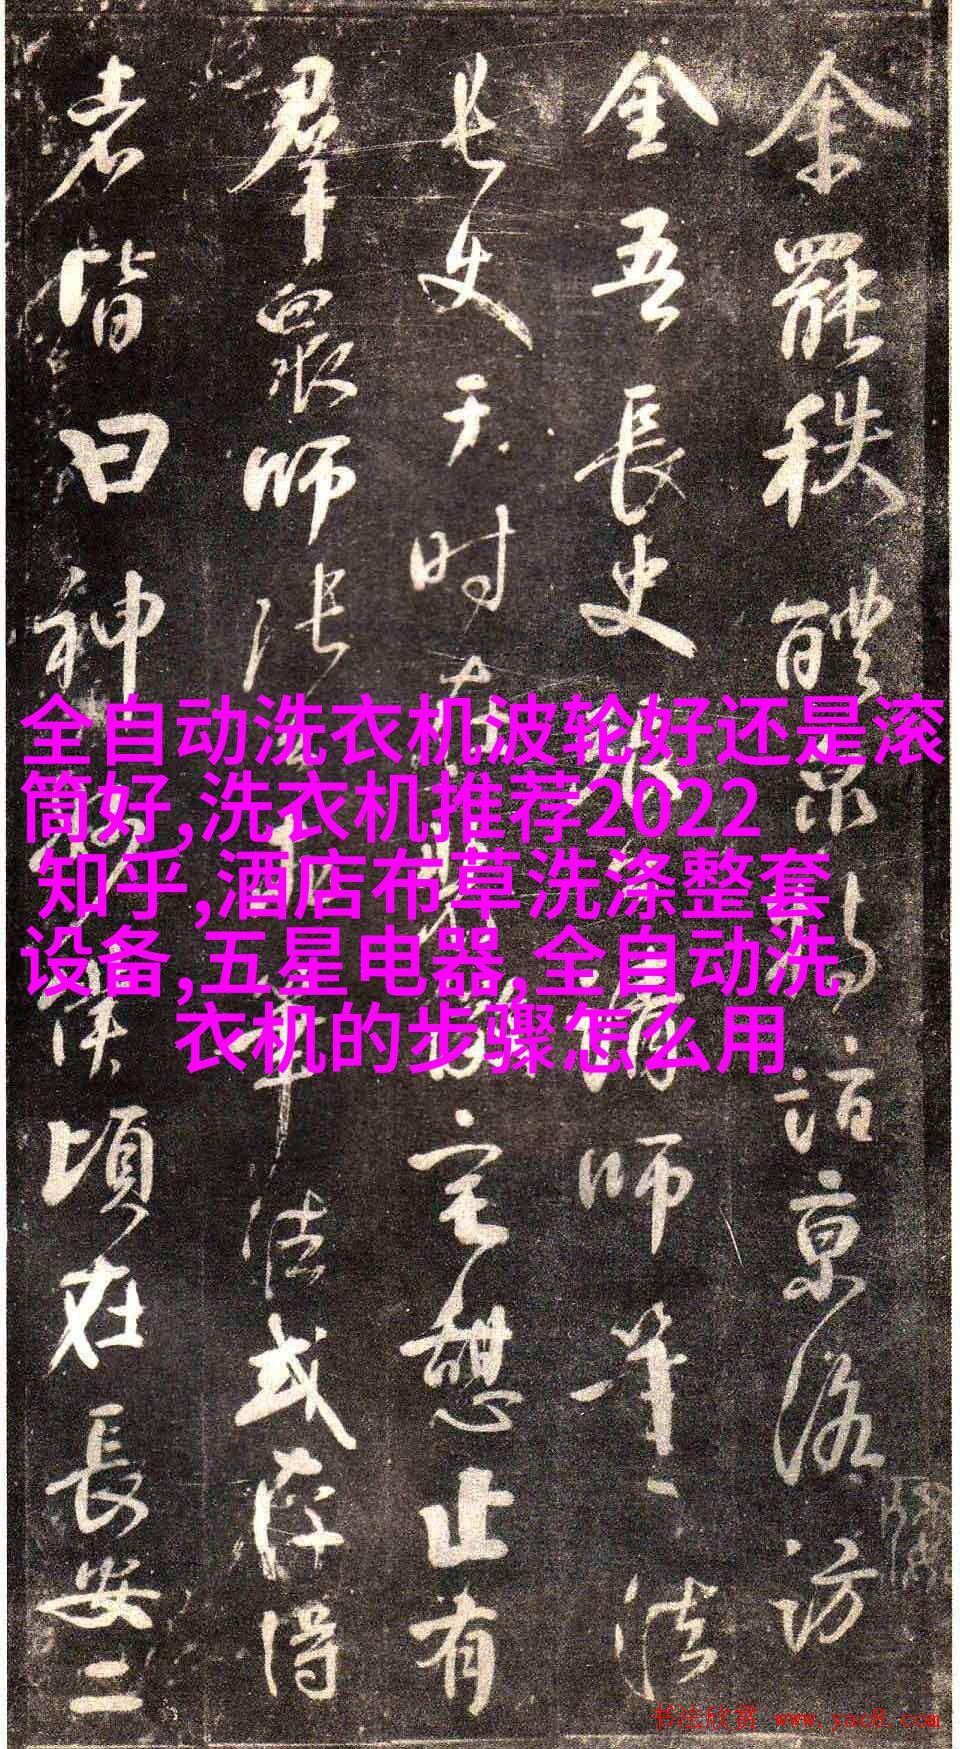 余罷秩醴泉特詣京洛訪
金吾長史張請師筆法
長史于時在裴儆宅憩止有
羣眾師張筆法或存得
者皆曰神僕頃在長安二
全自动洗衣机波轮好还是滚
筒好,洗衣机推荐2022
知乎,酒店布草洗涤整套
设备,五星电器,全自动洗
衣机的步骤怎么用
书法欣赏 www.yac8.com